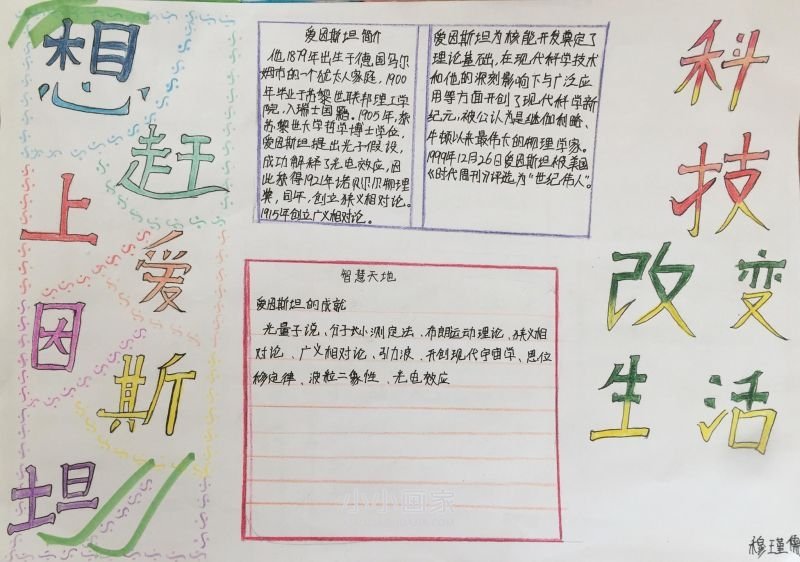 想
赶
上
爱
因
斯
坦
爱因斯坦简介
他1879年出生于德国乌尔
姆市的一个犹太人家庭，1900
年毕业于苏黎世联邦理工学
院，入瑞士国籍。1905年，获
苏黎世大学哲学博士学位，
爱因斯坦提出光子假设，
成功解释了光电效应，因
此获得1921年诺贝尔物理
奖，同年，创立狭义相对论。
1915年创立广义相对论。
爱因斯坦为核能开发奠定了
理论基础，在现代科学技术
和他的深刻影响下与广泛应
用等方面开创了现代科学新
纪元，被公认为是继伽利略、
牛顿以来最伟大的物理学家。
1999年12月26日爱因斯坦被美国
《时代周刊》评选为“世纪伟人”。
智慧天地
爱因斯坦的成就
光量子说、分子大小测定法、布朗运动理论、狭义相
对论、广义相对论、引力波、开创现代宇宙学、思位
移定律、波粒二象性、光电效应
科
技
改变
生活
小小画家
穆瑾儒